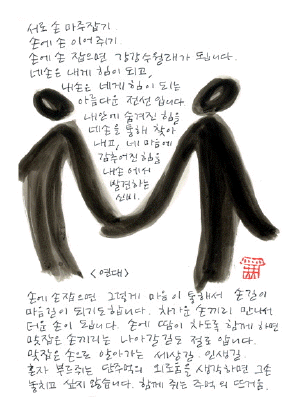 서로 손 마주잡기.
손에 손 이어주기.
손에 손 잡으면 강강수월래가 됩니다.
네손은 내게 힘이 되고,
내손은 네게 힘이 되는
아름다운 전선입니다.
내안에 숨겨진 힘을
네손을 통해 찾아
내고, 네 마음에
감추어진 힘을
내손에서
발견하는
신비.
<연대>
손에 손잡으면 그렇게 마음이 통해서 손길이
마음길이 되기도합니다. 차가운 손끼리 만나서
더운 손이 됩니다. 손에 땀이 차도록 함께 하면
맞잡은 손끼리는 나아갈길도 절로 압니다.
맞잡은 손으로 알아가는 세상길. 인생길.
혼자 부르쥐는 단주먹의 외로움을 생각하면 그손
놓치고 싶지 않습니다. 함께 쥐는 주먹의 뜨거움.